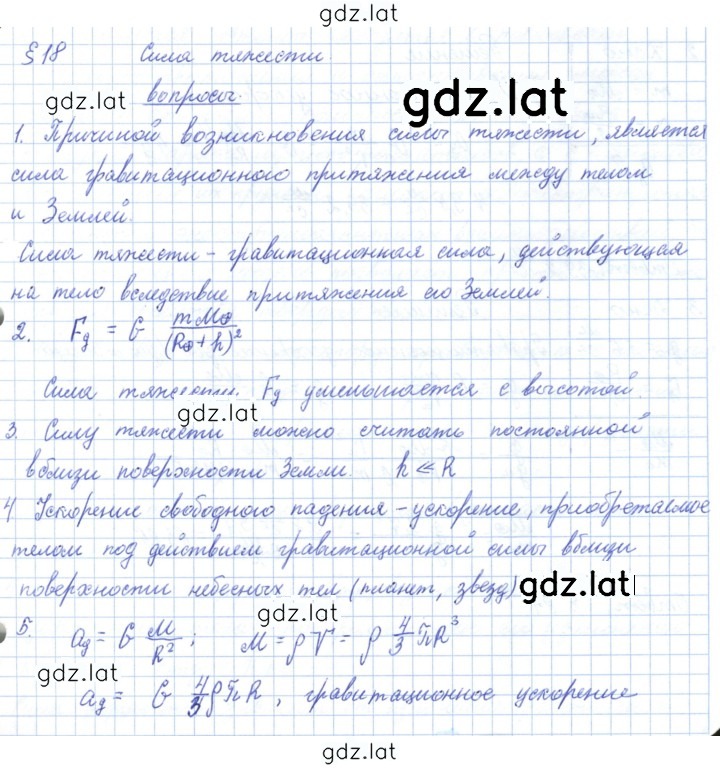 gdz.lat
§ 18 Сила тяжести
gdz.lat вопросы. gdz.lat
1. Причиной возникновения силы тяжести, является
сила гравитационного притяжения между телом
и Землей.
Сила тяжести - гравитационная сила, действующая
на тело вследствие притяжения его Землей.
2. Fg = G mM⊕/(R⊕+h)²
Сила тяжести Fg уменьшается с высотой.
gdz.lat
3. Силу тяжести можно считать постоянной
вблизи поверхности Земли. h ≪ R
4 Ускорение свободного падения - ускорение, приобретаемое
телом под действием гравитационной силы вблизи
поверхности небесных тел (планет, звезд) gdz.lat
gdz.lat
5. ag = G M/R² ; M = ρV = ρ 4/3 πR³
gdz.lat
ag = G 4/3 ρπR, гравитационное ускорение
gdz.lat